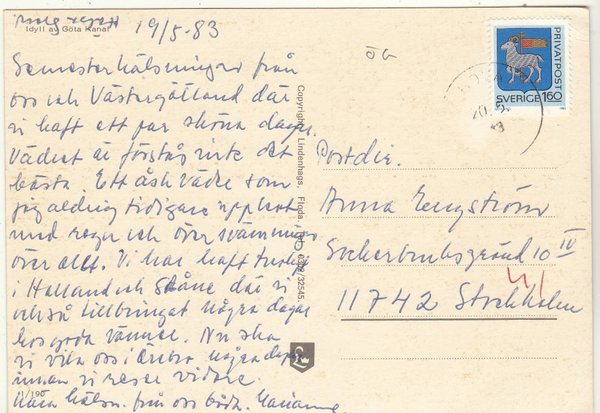 19/5-83
Idyll av Göta Kanal
Semesterhälsningar från
oss och Västergötland där
vi haft ett par sköna dagar.
Vädret är förstås inte det
bästa. Ett åskväder som
jag aldrig tidigare upplevt
med regn och översvämningar
över allt. Vi har haft
i Holland och Skåne där vi
också tillbringat några dagar
hos goda vänner. Nu ska
vi vila oss i Örebro några dagar
innan vi reser vidare.
Kära hälsn. från oss båda. Marianne
11/190
Copyright: Lindenhags, Floda
/32545.
ÖG
PRIVATPOST
SVERIGE 160
Postdir.
Anna Engström
10 IV
11742 Stockholm